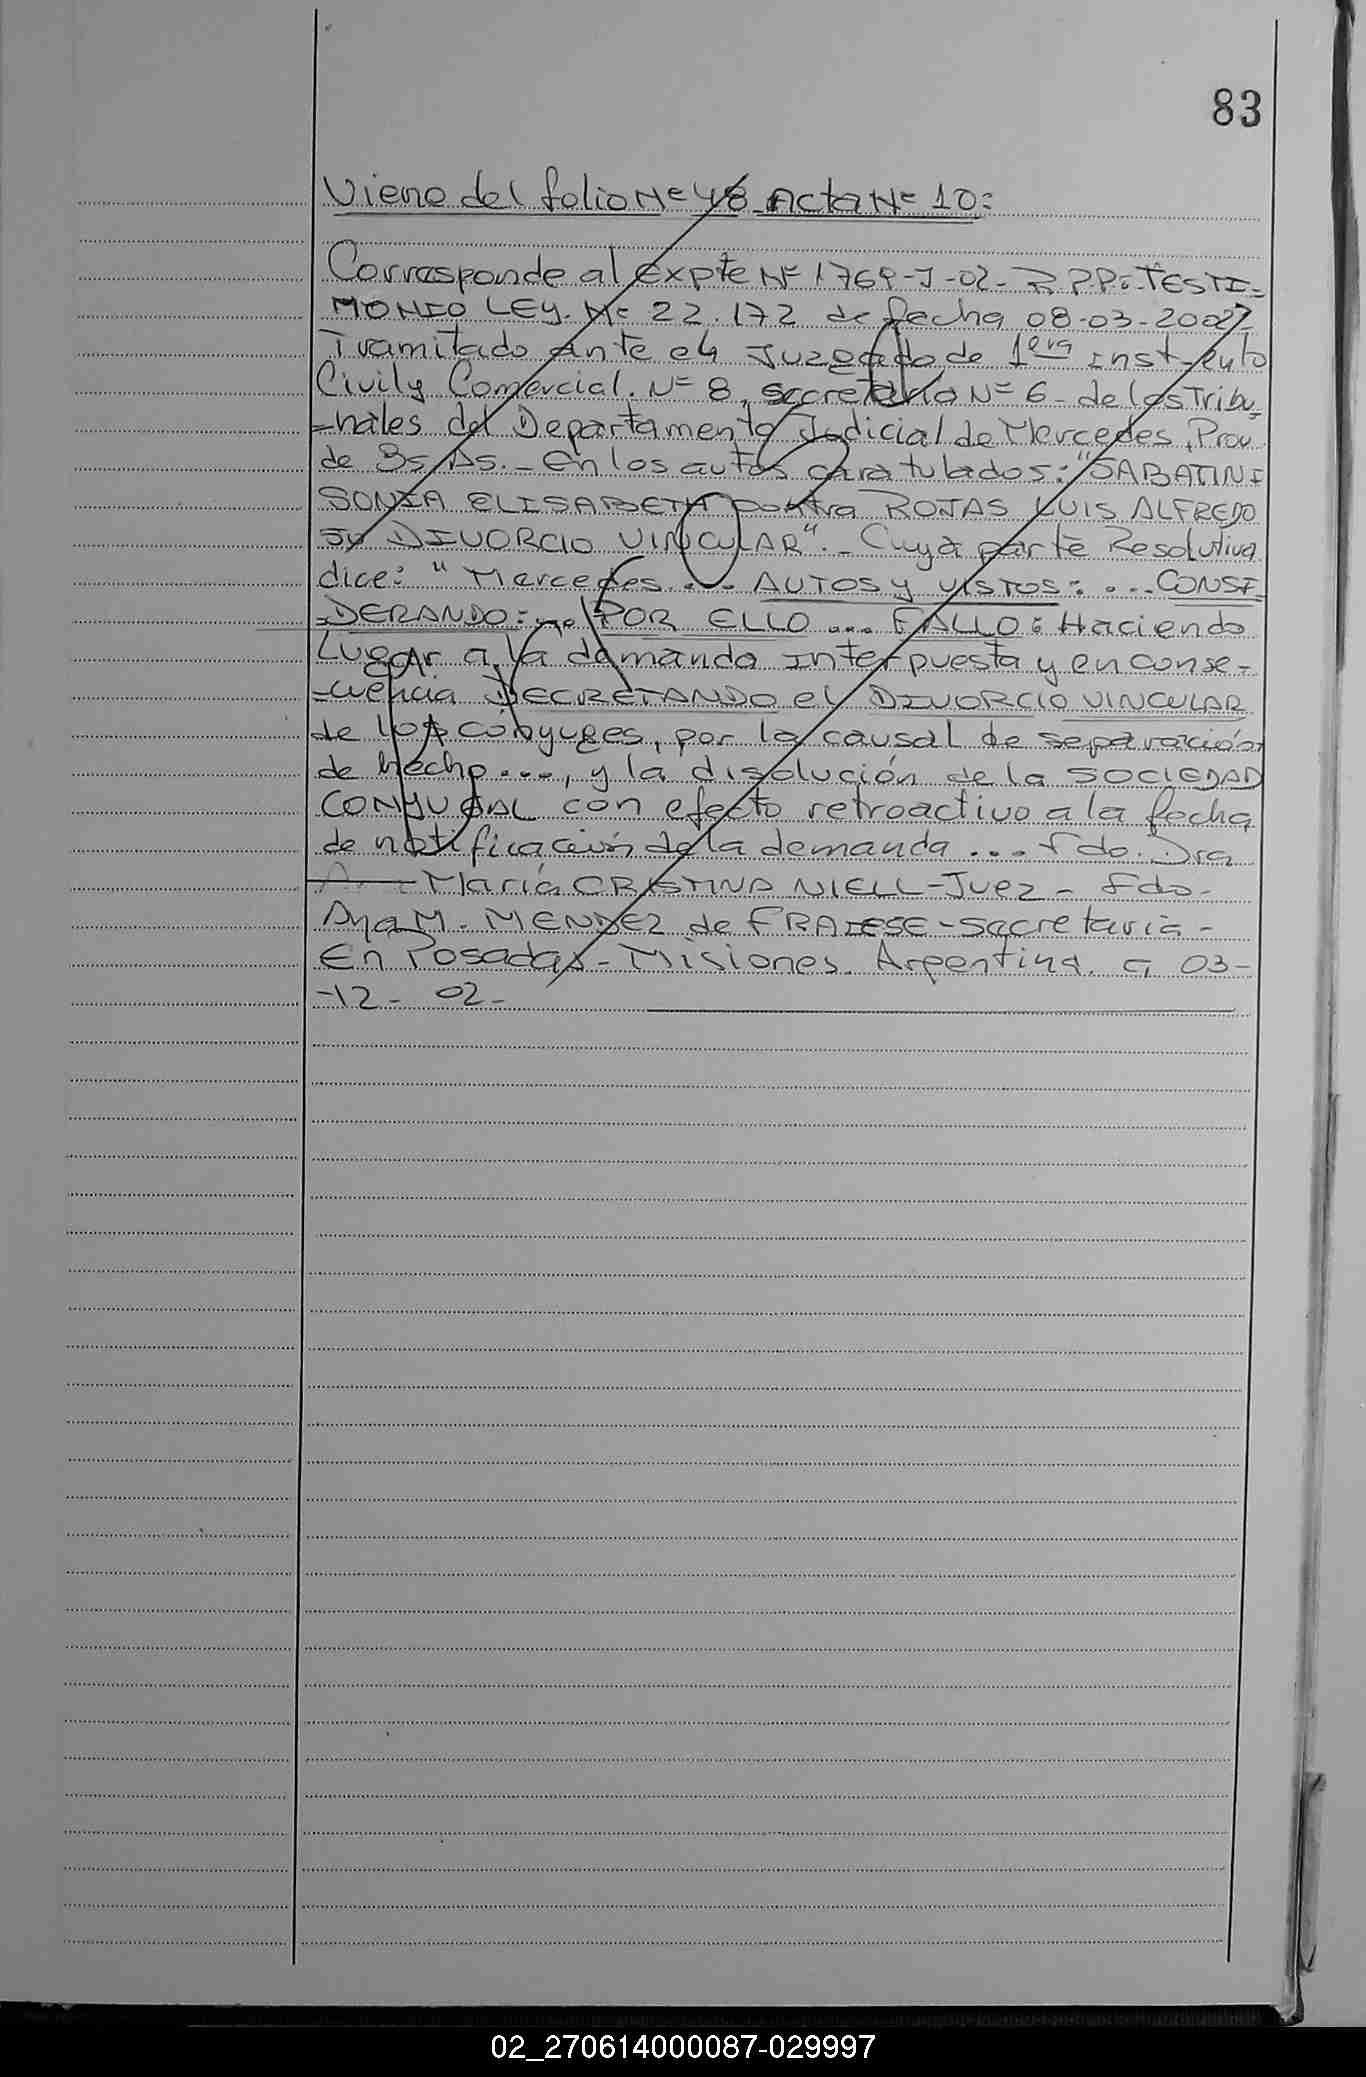 83
Viene del folio Nº 48 Acta Nº 10:
Corresponde al Expte Nº 1769-J-02- R.P.P.: TESTI-
MONIO LEY. Nº 22.172 de fecha 08-03-2002
Tramitado ante el Juzgado de 1era inst- en lo
Civil y Comercial. Nº 8, secretaria Nº 6- de los Tribu-
-nales del Departamento Judicial de Mercedes, Prov
de Bs. As.- En los autos caratulados: "SABATINI
SONIA ELISABETH contra ROJAS LUIS ALFREDO
S/ DIVORCIO VINCULAR".- Cuya parte Resolutiva
dice: "Mercedes.... AUTOS y VISTOS: ... CONSI-
-DERANDO: ... POR ELLO... FALLO: Haciendo
Lugar a la demanda interpuesta y en conse-
-cuencia DECRETANDO el DIVORCIO VINCULAR
de los cónyuges, por la causal de separación
de hecho...., y la disolución de la SOCIEDAD
CONYUGAL con efecto retroactivo a la fecha
de notificación de la demanda ... Fdo. Dra
María CRISTINA NIELL-Juez- Fdo-
Ana M. MENDEZ de FRAIESE-secretaria-
En Posadas-Misiones. Argentina. a 03-
-12- 02-
PODA
02_270614000087-029997